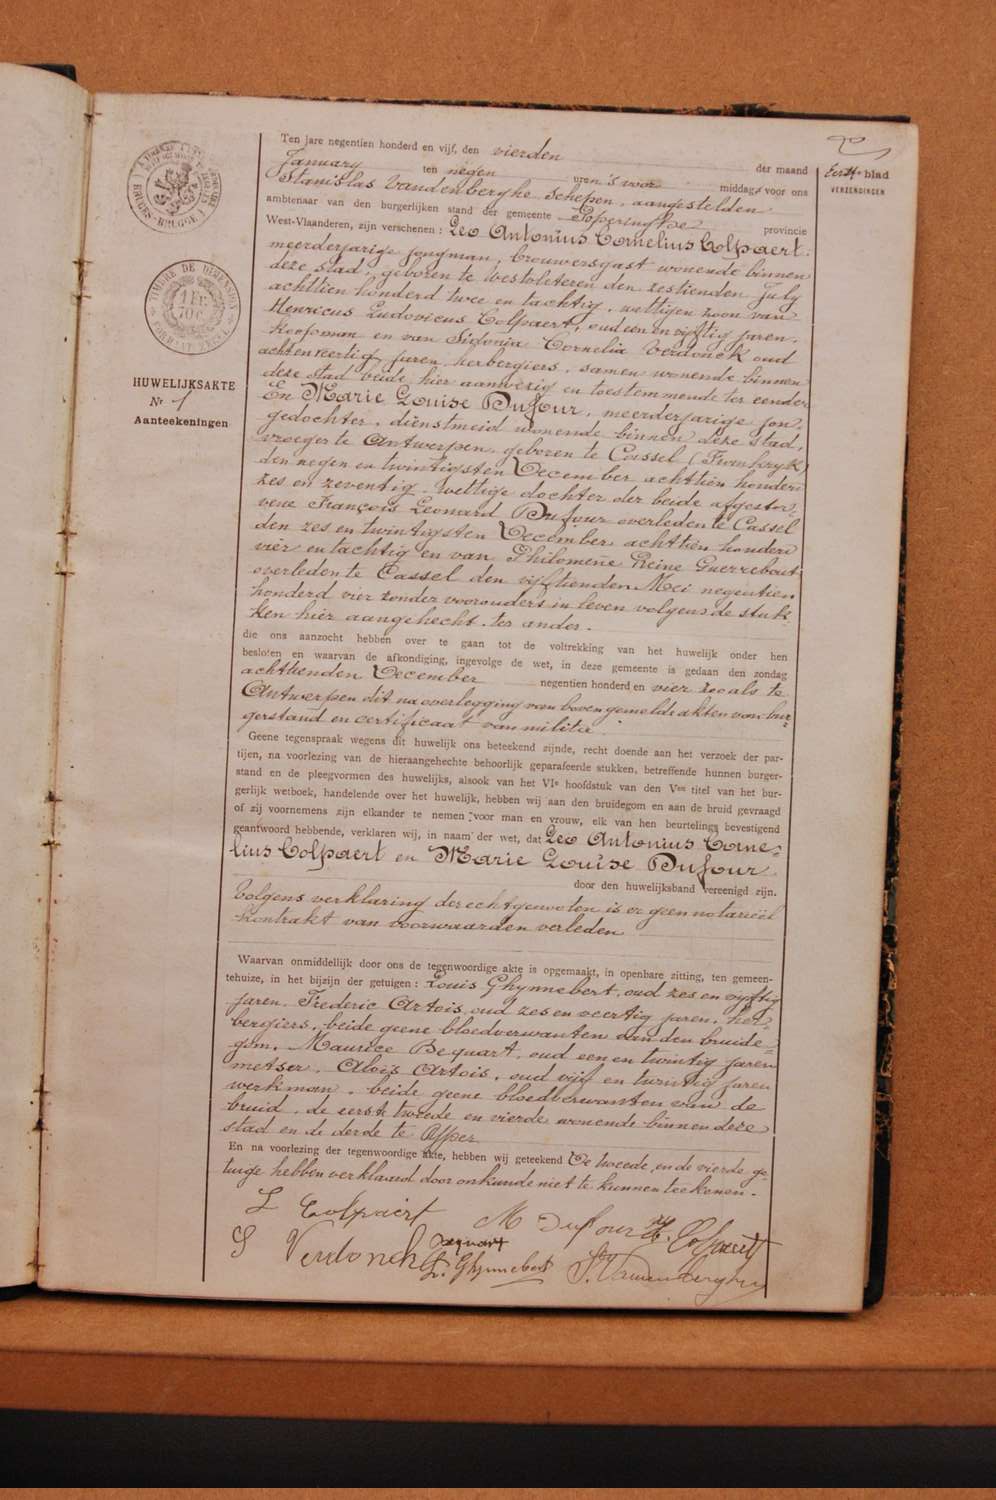 Eerste blad
VERZENDINGEN
TIMBRE DE DIMENSION
1 FR.
BRUGES - BRUGGE
HUWELIJKSAKTE
Nr 1
Aanteekeningen
Ten jare negentien honderd en vijf, den vierden der maand
January ten negen uren 's voor middags voor ons
Stanislas Vandenberghe Schepen, aangestelden
ambtenaar van den burgerlijken stand der gemeente Poperinghe provincie
West-Vlaanderen, zijn verschenen : Leo Antonius Cornelius Colpaert.
meerderjarige jongman, brouwersgast wonende binnen
deze stad, geboren te Westvleteren den zestienden July
achttien honderd twee en tachtig, wettigen zoon van
Henricus Ludovicus Colpaert, oud een en vijftig jaren,
koopman en van Sidonia Cornelia Verdonck oud
acht en veertig jaren, herbergiers, samen wonende binnen
deze stad beide hier aanwezig en toestemmende ter eender
En Marie Louise Dufour, meerderjarige jon-
gedochter, dienstmeid wonende binnen deze stad,
vroeger te Antwerpen, geboren te Cassel (Frankryk)
den negen en twintigsten December achttien honderd
zes en zeventig. wettige dochter der beide afgestor-
vene François Leonard Dufour overleden te Cassel
den zes en twintigsten December achttien honderd
vier en tachtig en van Philomene Reine Guerrebout
overleden te Cassel den vijftienden Mei negentien
honderd vier zonder voorouders in leven volgens de stuk
ken hier aangehecht. ter ander.
die ons aanzocht hebben over te gaan tot de voltrekking van het huwelijk onder hen
besloten en waarvan de afkondiging, ingevolge de wet, in deze gemeente is gedaan den zondag
achttienden December negentien honderd en vier zoo als te
Antwerpen dit na overlegging van boven gemelde akten van bur-
gerstand en certificaat van militie.
Geene tegenspraak wegens dit huwelijk ons beteekend zijnde, recht doende aan het verzoek der par-
tijen, na voorlezing van de hieraangehechte behoorlijk geparafeerde stukken, betreffende hunnen burger-
stand en de pleegvormen des huwelijks, alsook van het VIe hoofdstuk van den Ven titel van het bur-
gerlijk wetboek, handelende over het huwelijk, hebben wij aan den bruidegom en aan de bruid gevraagd
of zij voornemens zijn elkander te nemen voor man en vrouw, elk van hen beurtelings bevestigend
geantwoord hebbende, verklaren wij, in naam der wet, dat Leo Antonius Corne-
lius Colpaert en Marie Louise Dufour
door den huwelijksband vereenigd zijn.
Volgens verklaring der echtgenooten is er geen notariëel
kontrakt van voorwaarden verleden
Waarvan onmiddellijk door ons de tegenwoordige akte is opgemaakt, in openbare zitting, ten gemeen-
tehuize, in het bijzijn der getuigen : Louis Ghynnebert, oud zes en vyftig
jaren. Frederic Artois oud zes en veertig jaren, her-
bergiers, beide geene bloedverwanten van den bruide-
gom. Maurice Bequart, oud een en twintig jaren
metser. Aloïs Artois, oud vijf en twintig jaren
werkman. beide geene bloedverwanten van de
bruid. de eerste tweede en vierde wonende binnen deze
stad en de derde te
En na voorlezing der tegenwoordige akte, hebben wij geteekend De tweede, en de vierde ge-
tuige hebben verklaard door onkunde niet te kunnen teekenen.
L Colpaert
M Dufour
H. Colpaert
S Verdonck
Bequart
L. Ghynnebert
St. Vandenberghe